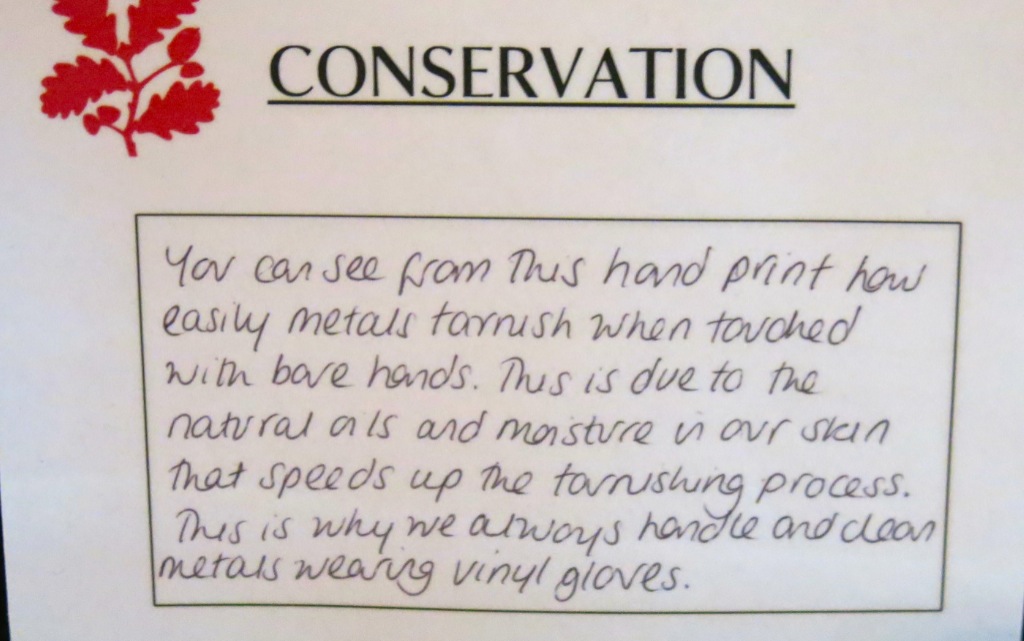 CONSERVATION
You can see from This hand print how
easily metals tarnish when touched
with bare hands. This is due to the
natural oils and moisture in our skin
that speeds up the tarnishing process.
This is why we always handle and clean
metals wearing vinyl gloves.